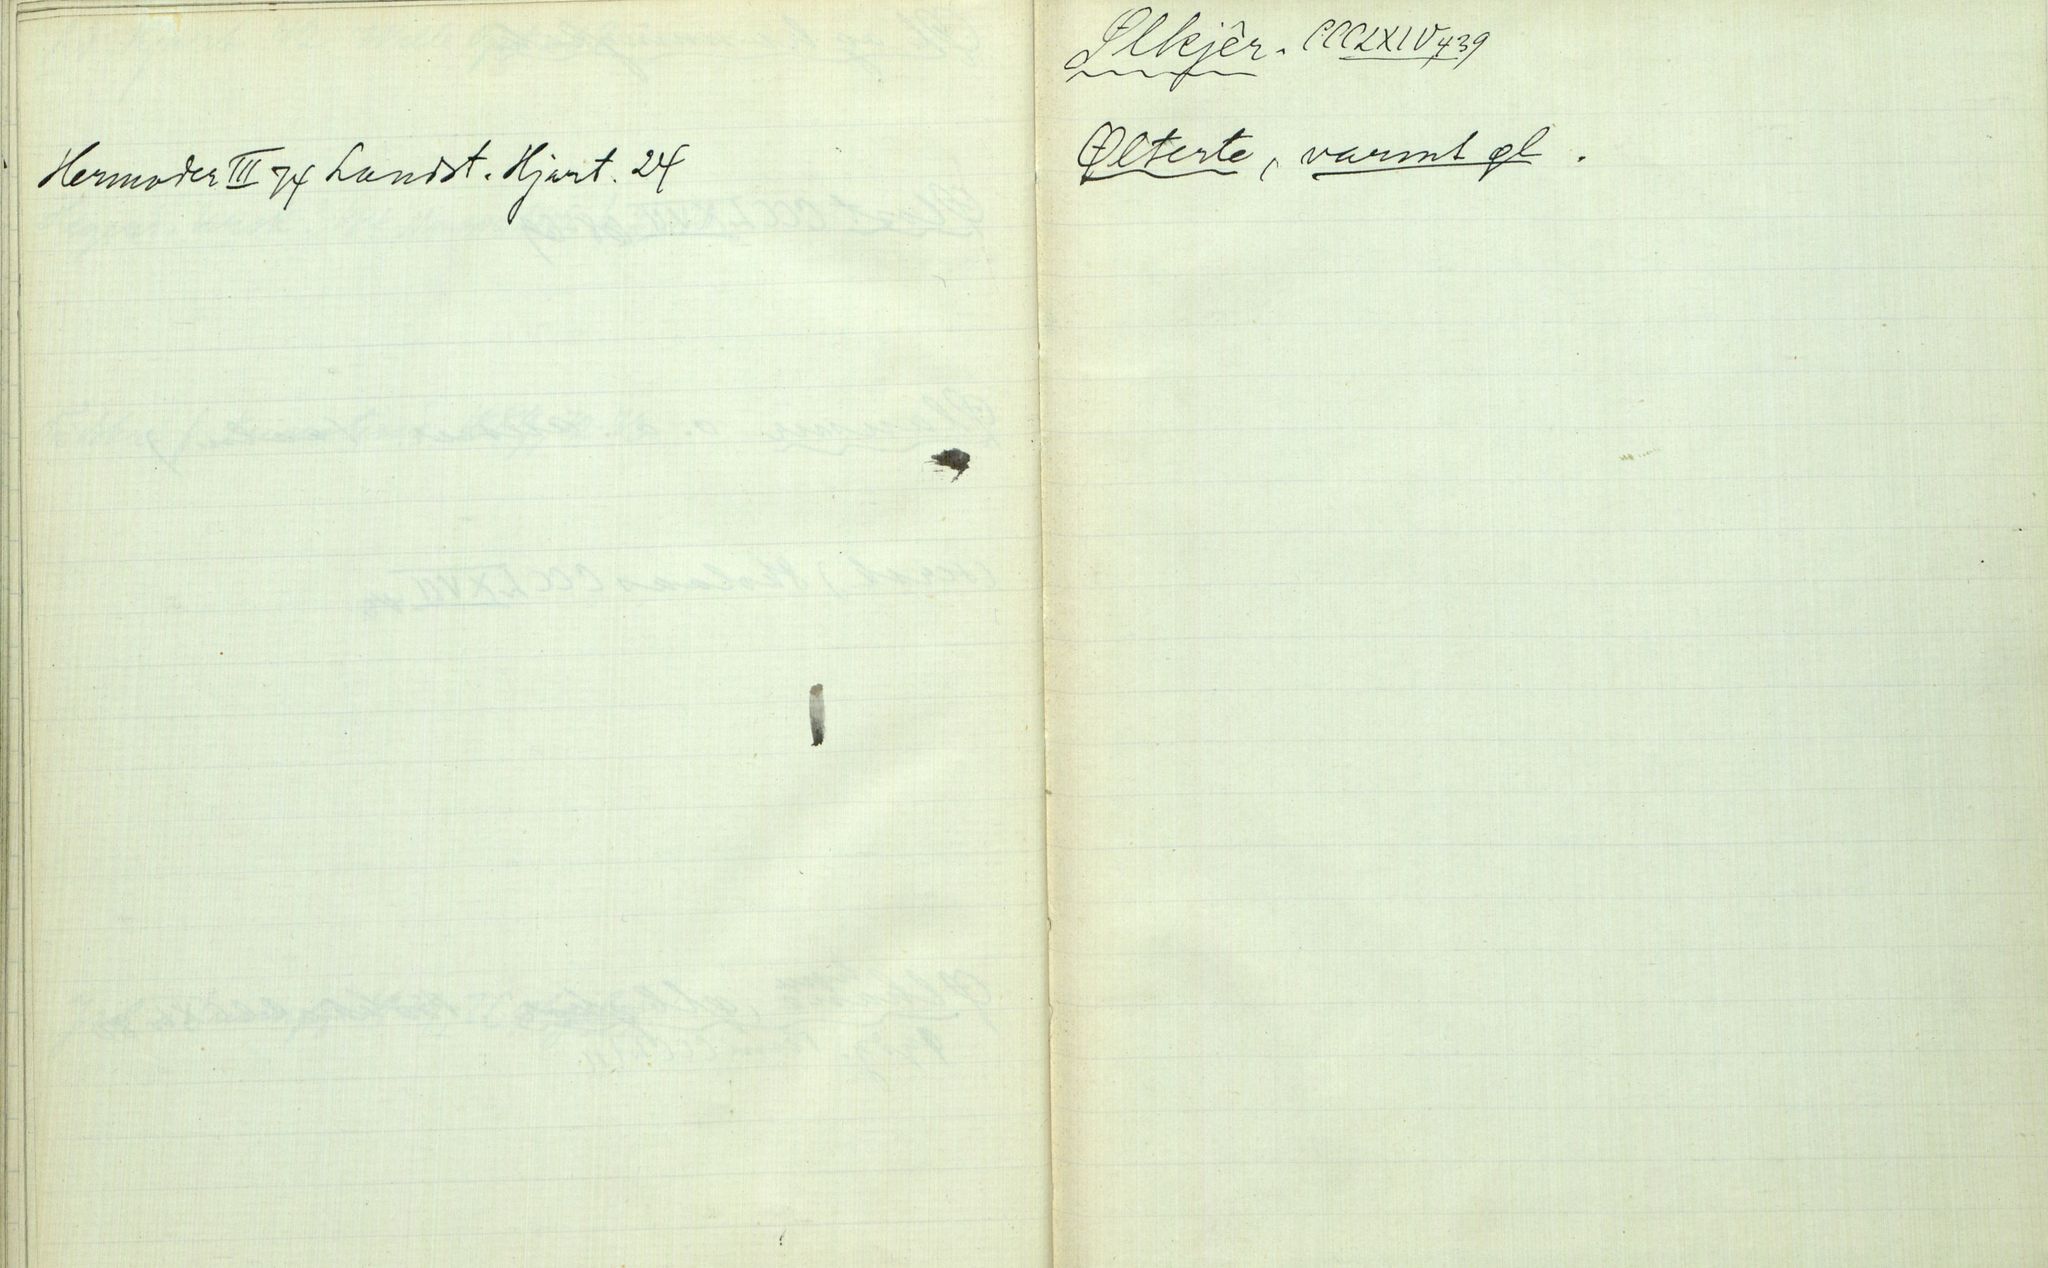 Hermoder III 74 Landst. Hjart. 24
Ølkjêr. CCCLXIV 439
Ølterte, varmt øl.